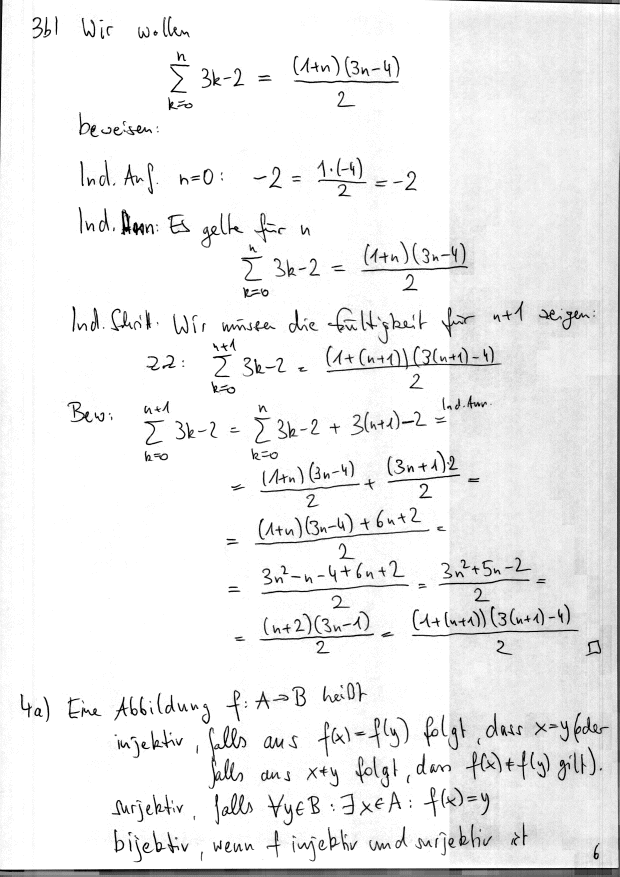 3b) Wir wollen
n
∑ 3k-2 = (1+n)(3n-4)/2
k=0
beweisen:
Ind. Anf. n=0: -2 = 1·(-4)/2 = -2
Ind. Ann: Es gelte für n
n
∑ 3k-2 = (1+n)(3n-4)/2
k=0
Ind. Schritt. Wir müssen die Gültigkeit für n+1 zeigen:
n+1
zz: ∑ 3k-2 = (1+(n+1))(3(n+1)-4)/2
k=0
Bew: n+1 n Ind. Ann.
∑ 3k-2 = ∑ 3k-2 + 3(n+1)-2 =
k=0 k=0
= (1+n)(3n-4)/2 + (3n+1)·2/2 =
= (1+n)(3n-4)+6n+2/2 =
= 3n²-n-4+6n+2/2 = 3n²+5n-2/2 =
= (n+2)(3n-1)/2 = (1+(n+1))(3(n+1)-4)/2 □
4a) Eine Abbildung f: A→B heißt
injektiv, falls aus f(x)=f(y) folgt, dass x=y (oder
falls aus x≠y folgt, dass f(x)≠f(y) gilt).
surjektiv, falls ∀y∈B: ∃x∈A: f(x)=y
bijektiv, wenn f injektiv und surjektiv ist
6